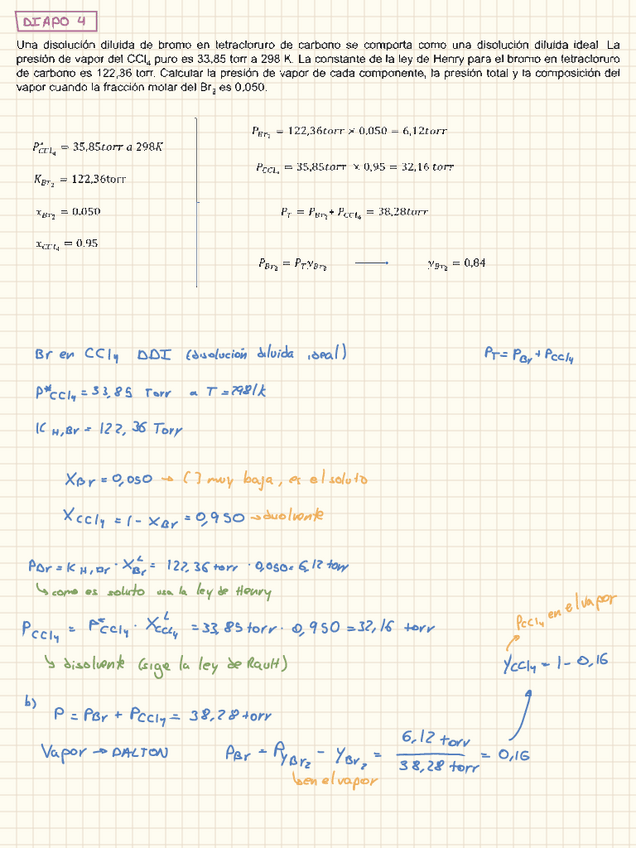 DIAPO 4
Una disolución diluida de bromo en tetracloruro de carbono se comporta como una disolución diluida ideal. La
presión de vapor del CCl₄ puro es 33,85 torr a 298 K. La constante de la ley de Henry para el bromo en tetracloruro
de carbono es 122,36 torr. Calcular la presión de vapor de cada componente, la presión total y la composición del
vapor cuando la fracción molar del Br₂ es 0,050.
P*CCl₄ = 35,85torr a 298K
KBr₂ = 122,36torr
xBr₂ = 0.050
xCCl₄ = 0.95
PBr₂ = 122,36torr × 0,050 = 6,12torr
PCCl₄ = 35,85torr × 0,95 = 32,16 torr
PT = PBr₂ + PCCl₄ = 38,28torr
PBr₂ = PTyBr₂ → yBr₂ = 0,84
Br en CCl₄ DDI (disolución diluida ideal)
PT = PBr + PCCl₄
P*CCl₄ = 33,85 Torr a T = 298 K
KH,Br = 122,36 Torr
XBr = 0,050 → [ ] muy baja, es el soluto
XCCl₄ = 1 - XBr = 0,950 → disolvente
PBr = KH,Br · XᴸBr = 122,36 torr · 0,050 = 6,12 torr
↳ como es soluto usa la ley de Henry
PCCl₄ = P*CCl₄ · XᴸCCl₄ = 33,85 torr · 0,950 = 32,16 torr
↳ disolvente (sige la ley de Rault)
PCCl₄ en el vapor
YCCl₄ = 1 - 0,16
b)
P = PBr + PCCl₄ = 38,28 torr
Vapor → DALTON
PBr = PYBr₂ - YBr₂ = 6,12 torr / 38,28 torr = 0,16
↳ en el vapor